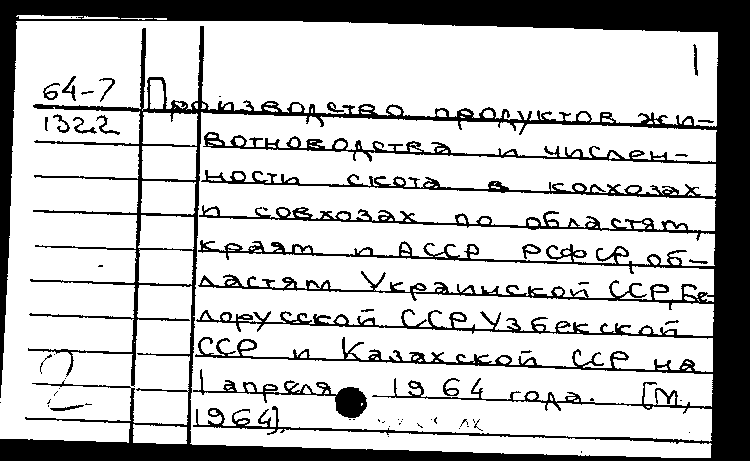 1
64-7 Производство продуктов жи-
1322 вотноводства и числен-
ности скота в колхозах
и совхозах по областям,
краям и АССР РСФСР, об-
ластям Украинской ССР, Бе-
лорусской ССР, Узбекской
ССР и Казахской ССР на
1 апреля 1964 года. [М,
1964].
2